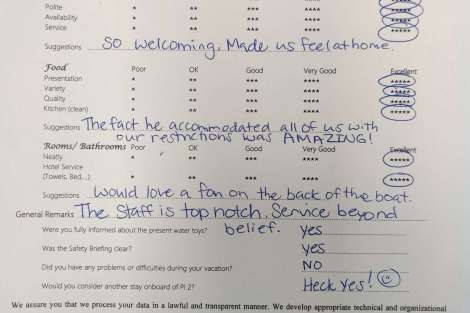 Polite * ** *** **** *****
Availability * ** *** **** *****
Service * ** *** **** *****
Suggestions So welcoming, Made us feel at home.
Food Poor OK Good Very Good Excellent
Presentation * ** *** **** *****
Variety * ** *** **** *****
Quality * ** *** **** *****
Kitchen (clean) * ** *** **** *****
Suggestions The fact he accommodated all of us with
our restrictions was AMAZING!
Rooms/ Bathrooms Poor OK Good Very Good Excellent
Neatly * ** *** **** *****
Hotel Service
(Towels, Bed,..) * ** *** **** *****
Suggestions would love a fan on the back of the boat.
General Remarks The Staff is top notch, Service beyond
belief.
Were you fully informed about the present water toys? yes
Was the Safety Briefing clear? yes
Did you have any problems or difficulties during your vacation? NO
Would you consider another stay onboard of PI 2? Heck Yes!
We assure you that we process your data in a lawful and transparent manner. We develop appropriate technical and organizational